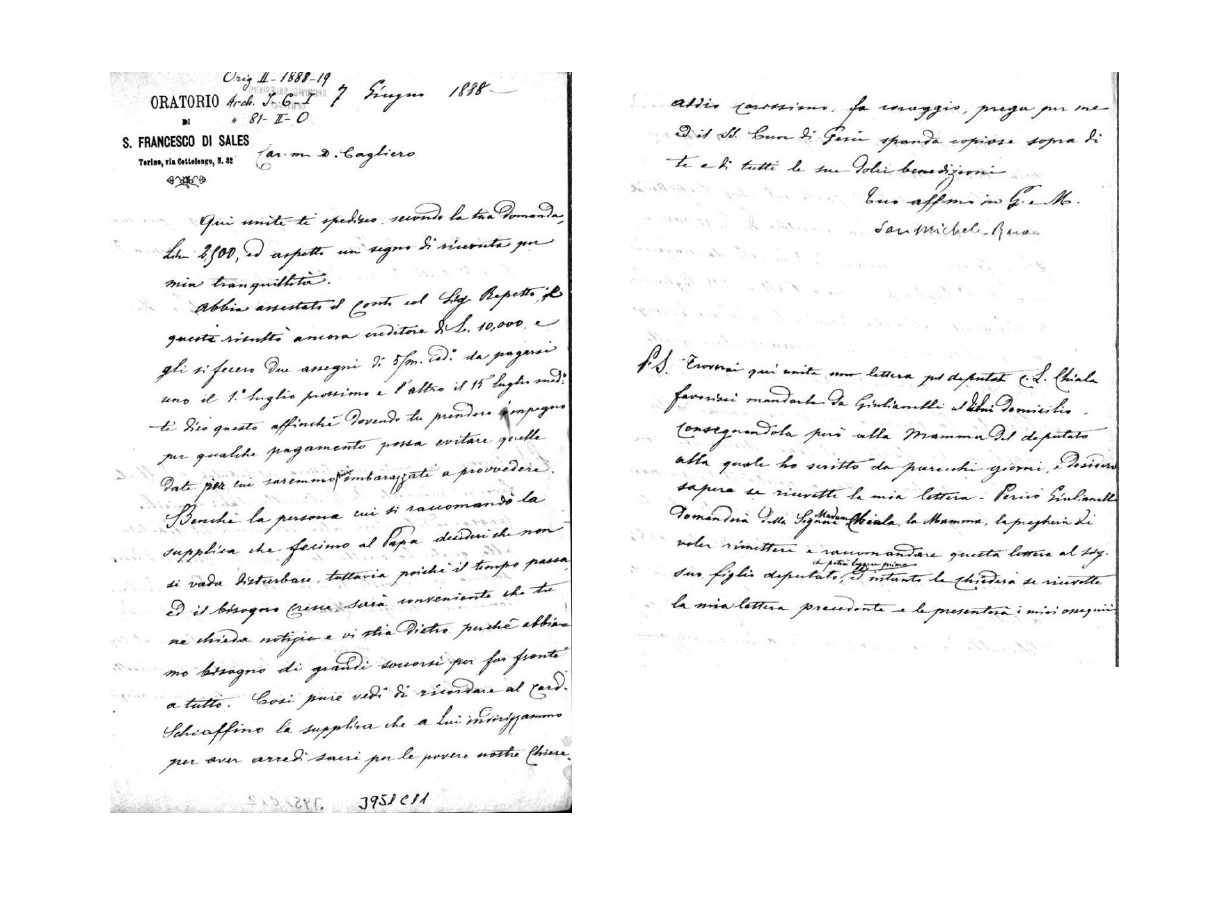 Orig II-1888-19
ORATORIO Arch. I-G-I 7 Giugno 1888
DI " 81-II-O
S. FRANCESCO DI SALES
Torino, via Cottolengo, N. 32
Car.mo D. Cagliero
Qui unite ti spedisco, secondo la tua domanda,
Lire 2500, ed aspetto un segno di ricevuta per
mia tranquillità.
Abbiam assestato il conto col Sig. Repetto, e
questi risultò ancora creditore di L. 10,000, e
gli si fecero due assegni di 5/m. cad.o da pagarsi
uno il 1.o luglio prossimo e l'altro il 15 luglio med.o
ti dico questo affinchè dovendo tu prendere impegno
per qualche pagamento possa evitare quelle
date per cui saremmo imbarazzati a provvedere.
Benchè la persona cui si raccomandò la
supplica che fecimo al Papa desideri che non
si vada disturbare, tuttavia poichè il tempo passa
ed il bisogno cresce sarà conveniente che tu
ne chieda notizie e vi stia dietro perchè abbia-
mo bisogno di grandi soccorsi per far fronte
a tutto. Così pure vedi di ricordare al Card.
Schiaffino la supplica che a lui indirizzammo
per aver arredi sacri per le povere nostre Chiese.
3951C11
addio carissimo, fa coraggio, prega per me
ed il SS. Cuor di Gesù spanda copiose sopra di
te e di tutti le sue dolci benedizioni
Tuo aff.mo in G. e M.
Sac. Michele Rua
P.S. Troverai qui unita una lettera pel deputato C. L. Chiala
favorisci mandarla da Giulianelli al di lui domicilio,
consegnandola però alla Mamma del deputato
alla quale ho scritto da parecchi giorni, e desidero
sapere se ricevette la mia lettera. Perciò Giulianelli
domanderà della Signora Madama Chiala, la Mamma, la pregherà di
voler rimettere e raccomandare questa lettera al Sig.
che potrà leggere prima
suo figlio deputato, ed intanto le chiederà se ricevette
la mia lettera precedente e le presenterà i miei ossequii